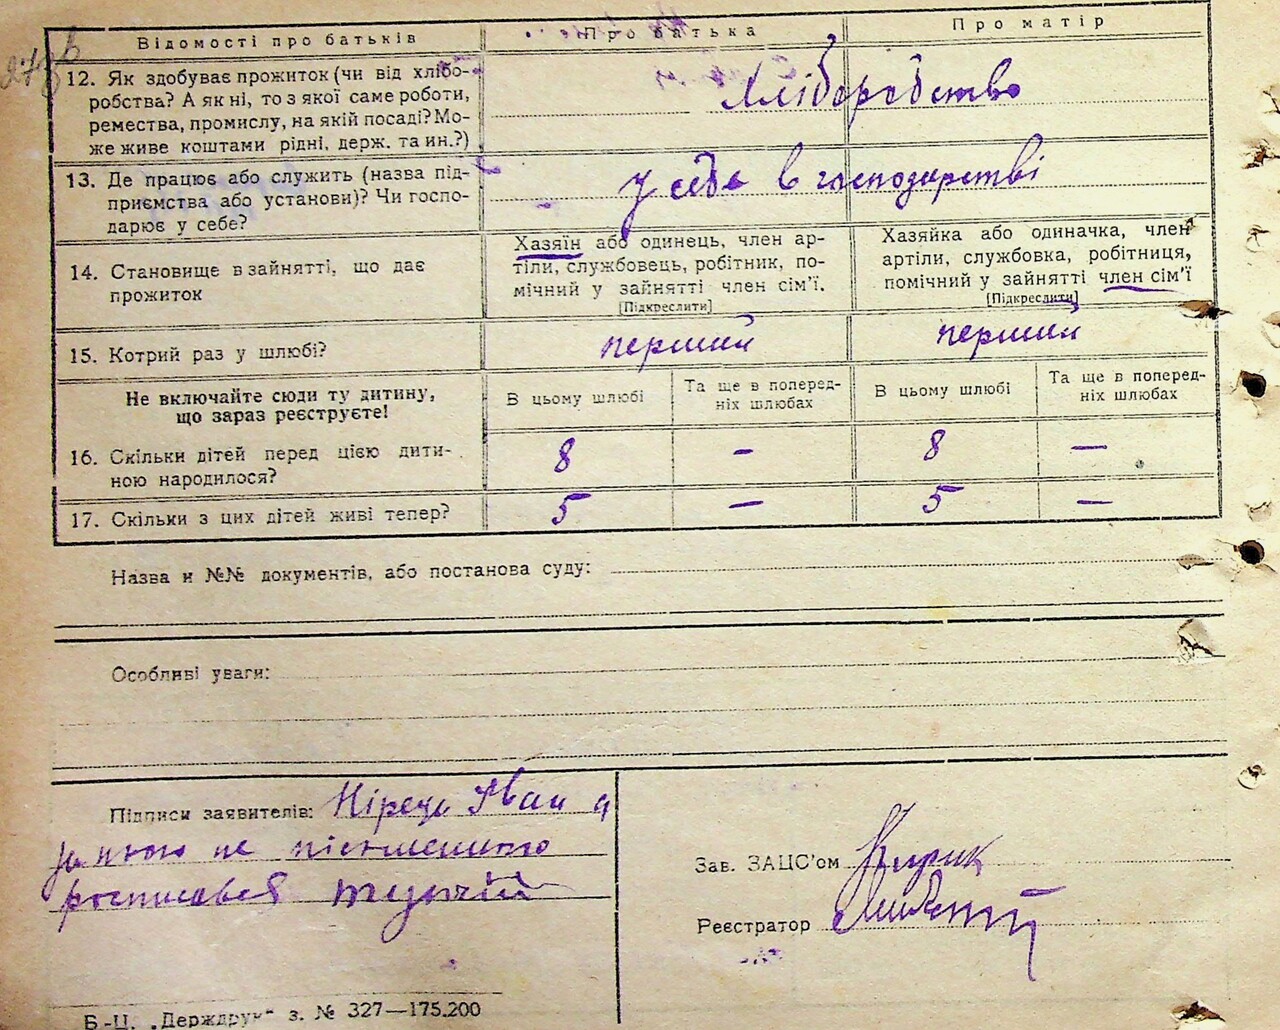 Відомості про батьків
Про батька
Про матір
12. Як здобуває прожиток (чи від хлібо-
робства? А як ні, то з якої саме роботи,
ремества, промислу, на якій посаді? Мо-
же живе коштами рідні, держ. та ин.?)
Хліборобство
13. Де працює або служить (назва під-
приємства або установи)? Чи госпо-
дарює у себе?
у себе в господарстві
14. Становище в зайнятті, що дає
прожиток
Хазяїн або одинець, член ар-
тіли, службовець, робітник, по-
мічний у зайнятті член сім'ї.
[Підкреслити]
Хазяйка або одиначка, член
артіли, службовка, робітниця,
помічний у зайнятті член сім'ї
[Підкреслити]
15. Котрий раз у шлюбі?
перший
перший
Не включайте сюди ту дитину,
що зараз реєструєте!
В цьому шлюбі
Та ще в поперед-
ніх шлюбах
В цьому шлюбі
Та ще в поперед-
ніх шлюбах
16. Скільки дітей перед цією дити-
ною народилося?
8
–
8
–
17. Скільки з цих дітей живі тепер?
5
–
5
–
Назва и №№ документів, або постанова суду:
Особливі уваги:
Підписи заявителів: Іван а
за нього не письменного
росписався
Зав. ЗАЦС'ом
Реєстратор
Б-Ц. „Держдрук“ з. № 327—175.200